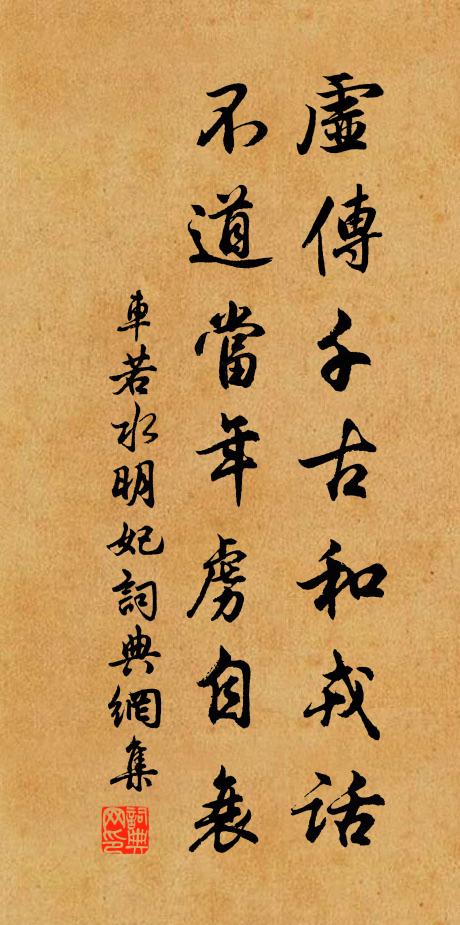 虛傳千古和戎話
不道當年虜自衰
車若水明妃詞典網集
詞典網印